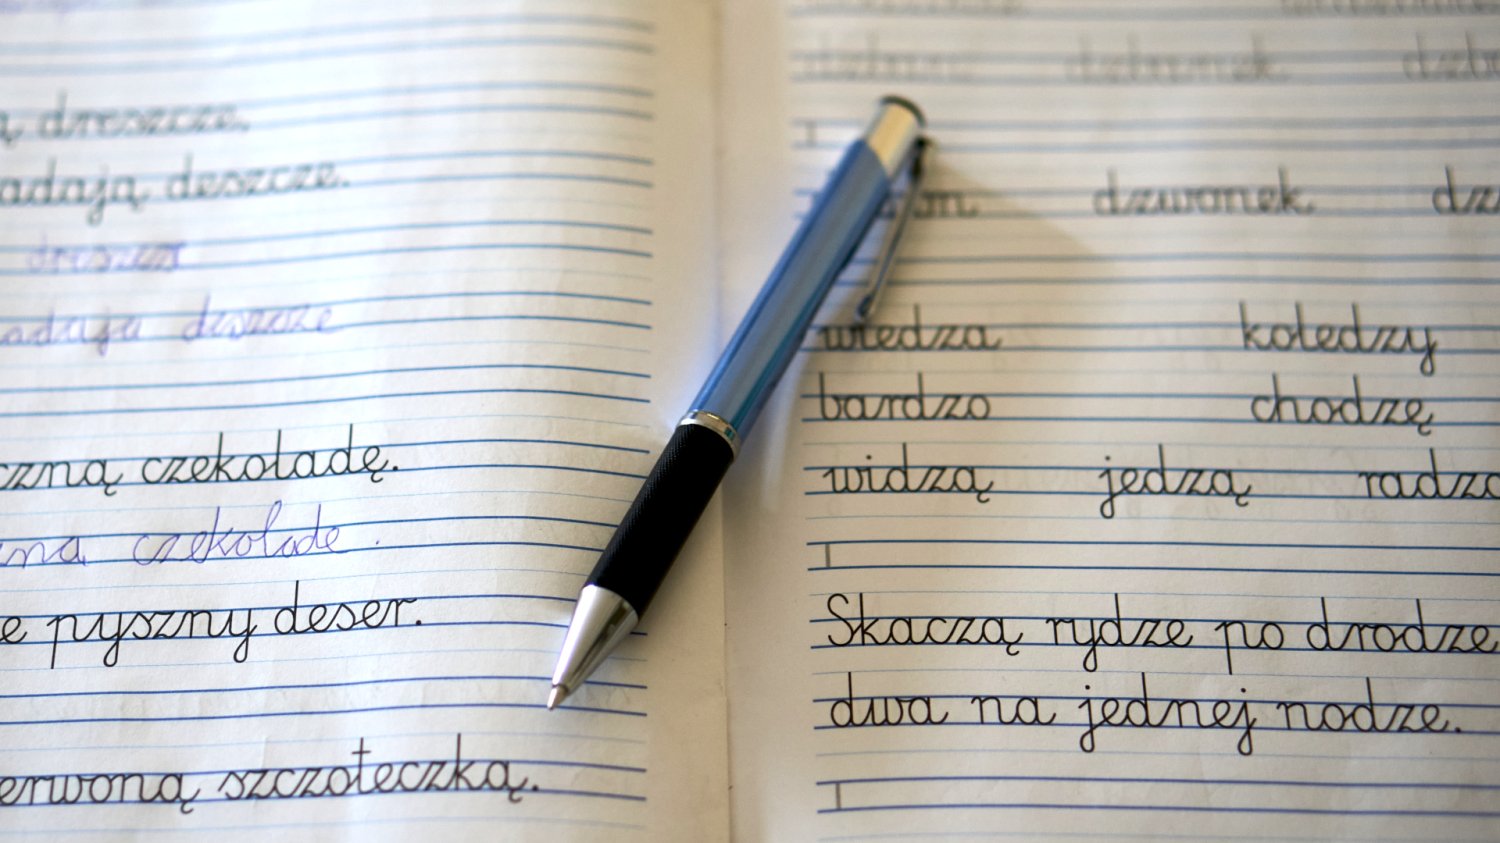 ą dreszcze,
adają deszcze.
adaja deszcze
czną czekoladę.
zna czekolade.
e pyszny deser.
erwoną szczoteczką.
dzbanek
dzwonek dz
wiedza koledzy
bardzo chodzę
widzą jedzą radz
Skaczą rydze po drodze
dwa na jednej nodze.